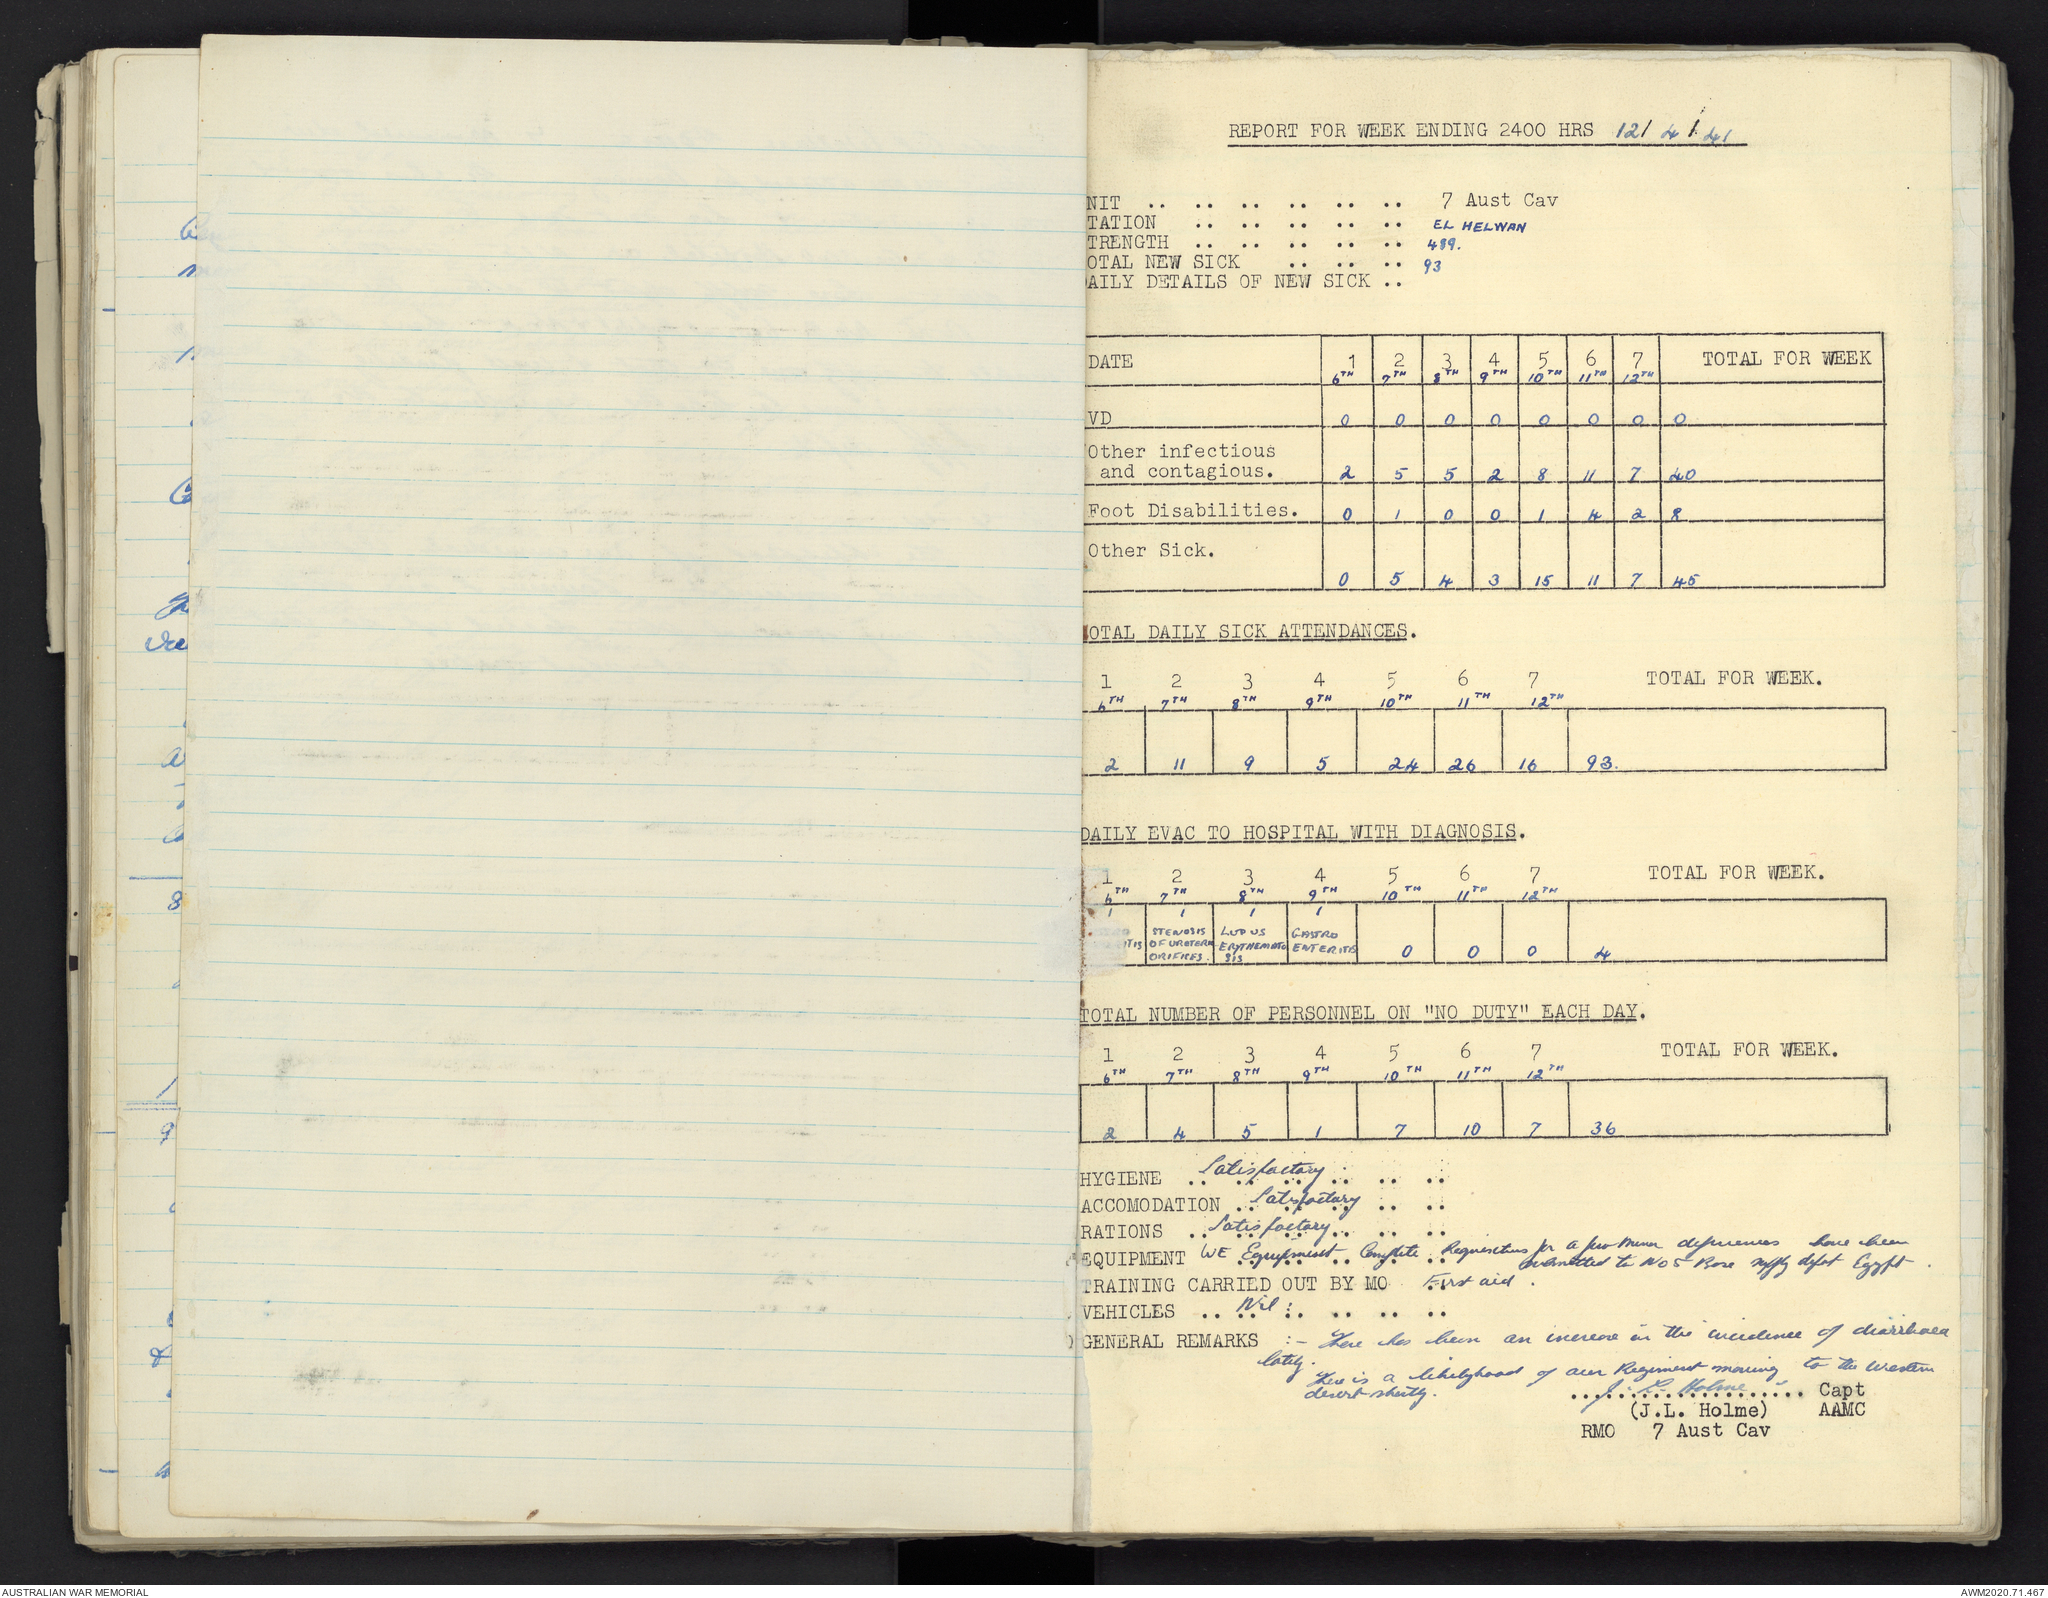 REPORT FOR WEEK ENDING 2400 HRS 12/4/41
NIT .. .. .. .. .. .. 7 Aust Cav
TATION .. .. .. .. .. EL HELWAN
TRENGTH .. .. .. .. .. 499.
OTAL NEW SICK .. .. .. 93
AILY DETAILS OF NEW SICK ..
DATE 1 2 3 4 5 6 7 TOTAL FOR WEEK
6TH 7TH 8TH 9TH 10TH 11TH 12TH
VD 0 0 0 0 0 0 0 0
Other infectious
and contagious. 2 5 5 2 8 11 7 40
Foot Disabilities. 0 1 0 0 1 4 2 8
Other Sick.
0 5 4 3 15 11 7 45
OTAL DAILY SICK ATTENDANCES.
1 2 3 4 5 6 7 TOTAL FOR WEEK.
6TH 7TH 8TH 9TH 10TH 11TH 12TH
2 11 9 5 24 26 16 93.
DAILY EVAC TO HOSPITAL WITH DIAGNOSIS.
1 2 3 4 5 6 7 TOTAL FOR WEEK.
6TH 7TH 8TH 9TH 10TH 11TH 12TH
1 1 1 1
STENOSIS LUPUS GASTRO
TIS OF URETERIC ERYTHEMATO ENTERITIS 0 0 0 4
ORIFICES. SIS
TOTAL NUMBER OF PERSONNEL ON "NO DUTY" EACH DAY.
1 2 3 4 5 6 7 TOTAL FOR WEEK.
6TH 7TH 8TH 9TH 10TH 11TH 12TH
2 4 5 1 7 10 7 36
HYGIENE .. Satisfactory .. ..
ACCOMODATION .. Satisfactory .. ..
RATIONS .. Satisfactory .. .. ..
EQUIPMENT WE Equipment Complete. Requisitions for a few minor deficiencies have been
submitted to No 5 Base supply depot Egypt.
TRAINING CARRIED OUT BY MO First aid.
VEHICLES .. Nil .. .. ..
GENERAL REMARKS :- There has been an increase in the incidence of diarrhoea
lately.
There is a likelyhood of our Regiment moving to the Western
desert shortly.
J. L. Holme Capt
(J.L. Holme) AAMC
RMO 7 Aust Cav
AUSTRALIAN WAR MEMORIAL
AWM2020.71.467